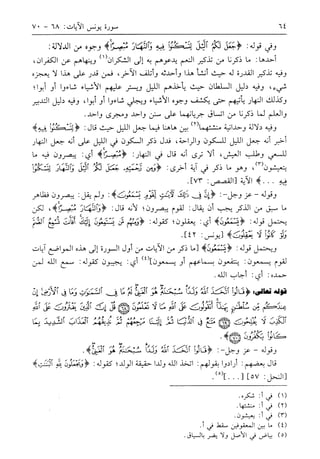 ٦٤ سورة يونس الآيات: ٦٨ - ٧٠
وفي قوله: ﴿جَعَلَ لَكُمُ ٱلَّيْلَ لِتَسْكُنُوا۟ فِيهِ وَٱلنَّهَارَ مُبْصِرًا﴾ وجوه من الدلالة:
أحدها: ما ذكرنا من تذكير النعم يدعوهم به إلى الشكران(١) وينهاهم عن الكفران،
وفيه تذكير القدرة له حيث أنشأ هذا وأحدثه وأتلف الآخر، فمن قدر على هذا لا يعجزه
شيء، وفيه دليل السلطان حيث يأخذهم الليل ويستر عليهم الأشياء شاءوا أو أبوا؛
وكذلك النهار يأتيهم حتى يكشف وجوه الأشياء ويجلي شاءوا أو أبوا، وفيه دليل التدبير
والعلم لما ذكرنا من اتساق جريانهما على سنن واحد ومجرى واحد.
وفيه دلالة وحدانية منشئهما(٢) بين هاهنا فيما جعل الليل حيث قال: ﴿لِتَسْكُنُوا۟ فِيهِ﴾
أخبر أنه جعل الليل للسكون والراحة، فدل ذكر السكون في الليل على أنه جعل النهار
للسعي وطلب العيش، ألا ترى أنه قال في النهار: ﴿مُبْصِرًا﴾ أي: يبصرون فيه ما
يتعيشون(٣)، وهو ما ذكر في آية أخرى: ﴿وَمِن رَّحْمَتِهِۦ جَعَلَ لَكُمُ ٱلَّيْلَ وَٱلنَّهَارَ لِتَسْكُنُوا۟
فِيهِ . . .﴾ الآية [القصص: ٧٣].
وقوله - عز وجل -: ﴿إِنَّ فِى ذَٰلِكَ لَءَايَٰتٍ لِّقَوْمٍ يَسْمَعُونَ﴾: ولم يقل: يبصرون فظاهر
ما سبق من الذكر يجب أن يقال: لقوم يبصرون؛ لأنه قال: ﴿وَٱلنَّهَارَ مُبْصِرًا﴾، لكن
يحتمل قوله: ﴿يَسْمَعُونَ﴾ أي: يعقلون؛ كقوله: ﴿وَمِنْهُم مَّن يَسْتَمِعُونَ إِلَيْكَ أَفَأَنتَ تُسْمِعُ ٱلصُّمَّ
وَلَوْ كَانُوا۟ لَا يَعْقِلُونَ﴾ [يونس: ٤٢].
ويحتمل قوله: ﴿يَسْمَعُونَ﴾ [ما ذكر من الآيات من أول السورة إلى هذه المواضع آيات
لقوم يسمعون: ينتفعون بسماعهم أو يسمعون](٤) أي: يجيبون كقوله: سمع الله لمن
حمده: أي: أجاب الله.
قوله تعالى: ﴿قَالُوا۟ ٱتَّخَذَ ٱللَّهُ وَلَدًا سُبْحَٰنَهُۥ هُوَ ٱلْغَنِىُّ لَهُۥ مَا فِى ٱلسَّمَٰوَٰتِ وَمَا فِى ٱلْأَرْضِ إِنْ
عِندَكُم مِّن سُلْطَٰنٍۭ بِهَٰذَآ أَتَقُولُونَ عَلَى ٱللَّهِ مَا لَا تَعْلَمُونَ ۝ قُلْ إِنَّ ٱلَّذِينَ يَفْتَرُونَ عَلَى ٱللَّهِ
ٱلْكَذِبَ لَا يُفْلِحُونَ ۝ مَتَٰعٌ فِى ٱلدُّنْيَا ثُمَّ إِلَيْنَا مَرْجِعُهُمْ ثُمَّ نُذِيقُهُمُ ٱلْعَذَابَ ٱلشَّدِيدَ بِمَا
كَانُوا۟ يَكْفُرُونَ ۝﴾.
وقوله - عز وجل -: ﴿قَالُوا۟ ٱتَّخَذَ ٱللَّهُ وَلَدًا سُبْحَٰنَهُۥ هُوَ ٱلْغَنِىُّ﴾.
قال بعضهم: أرادوا بقولهم: اتخذ الله ولدا حقيقة الولد؛ كقوله: ﴿وَيَجْعَلُونَ لِلَّهِ ٱلْبَنَٰتِ﴾
[النحل: ٥٧] [. . .](٥).
(١) في أ: شكره.
(٢) في أ: منشئها.
(٣) في أ: يعيشون.
(٤) ما بين المعقوفين سقط في أ.
(٥) بياض في الأصل ولا يضر بالسياق.